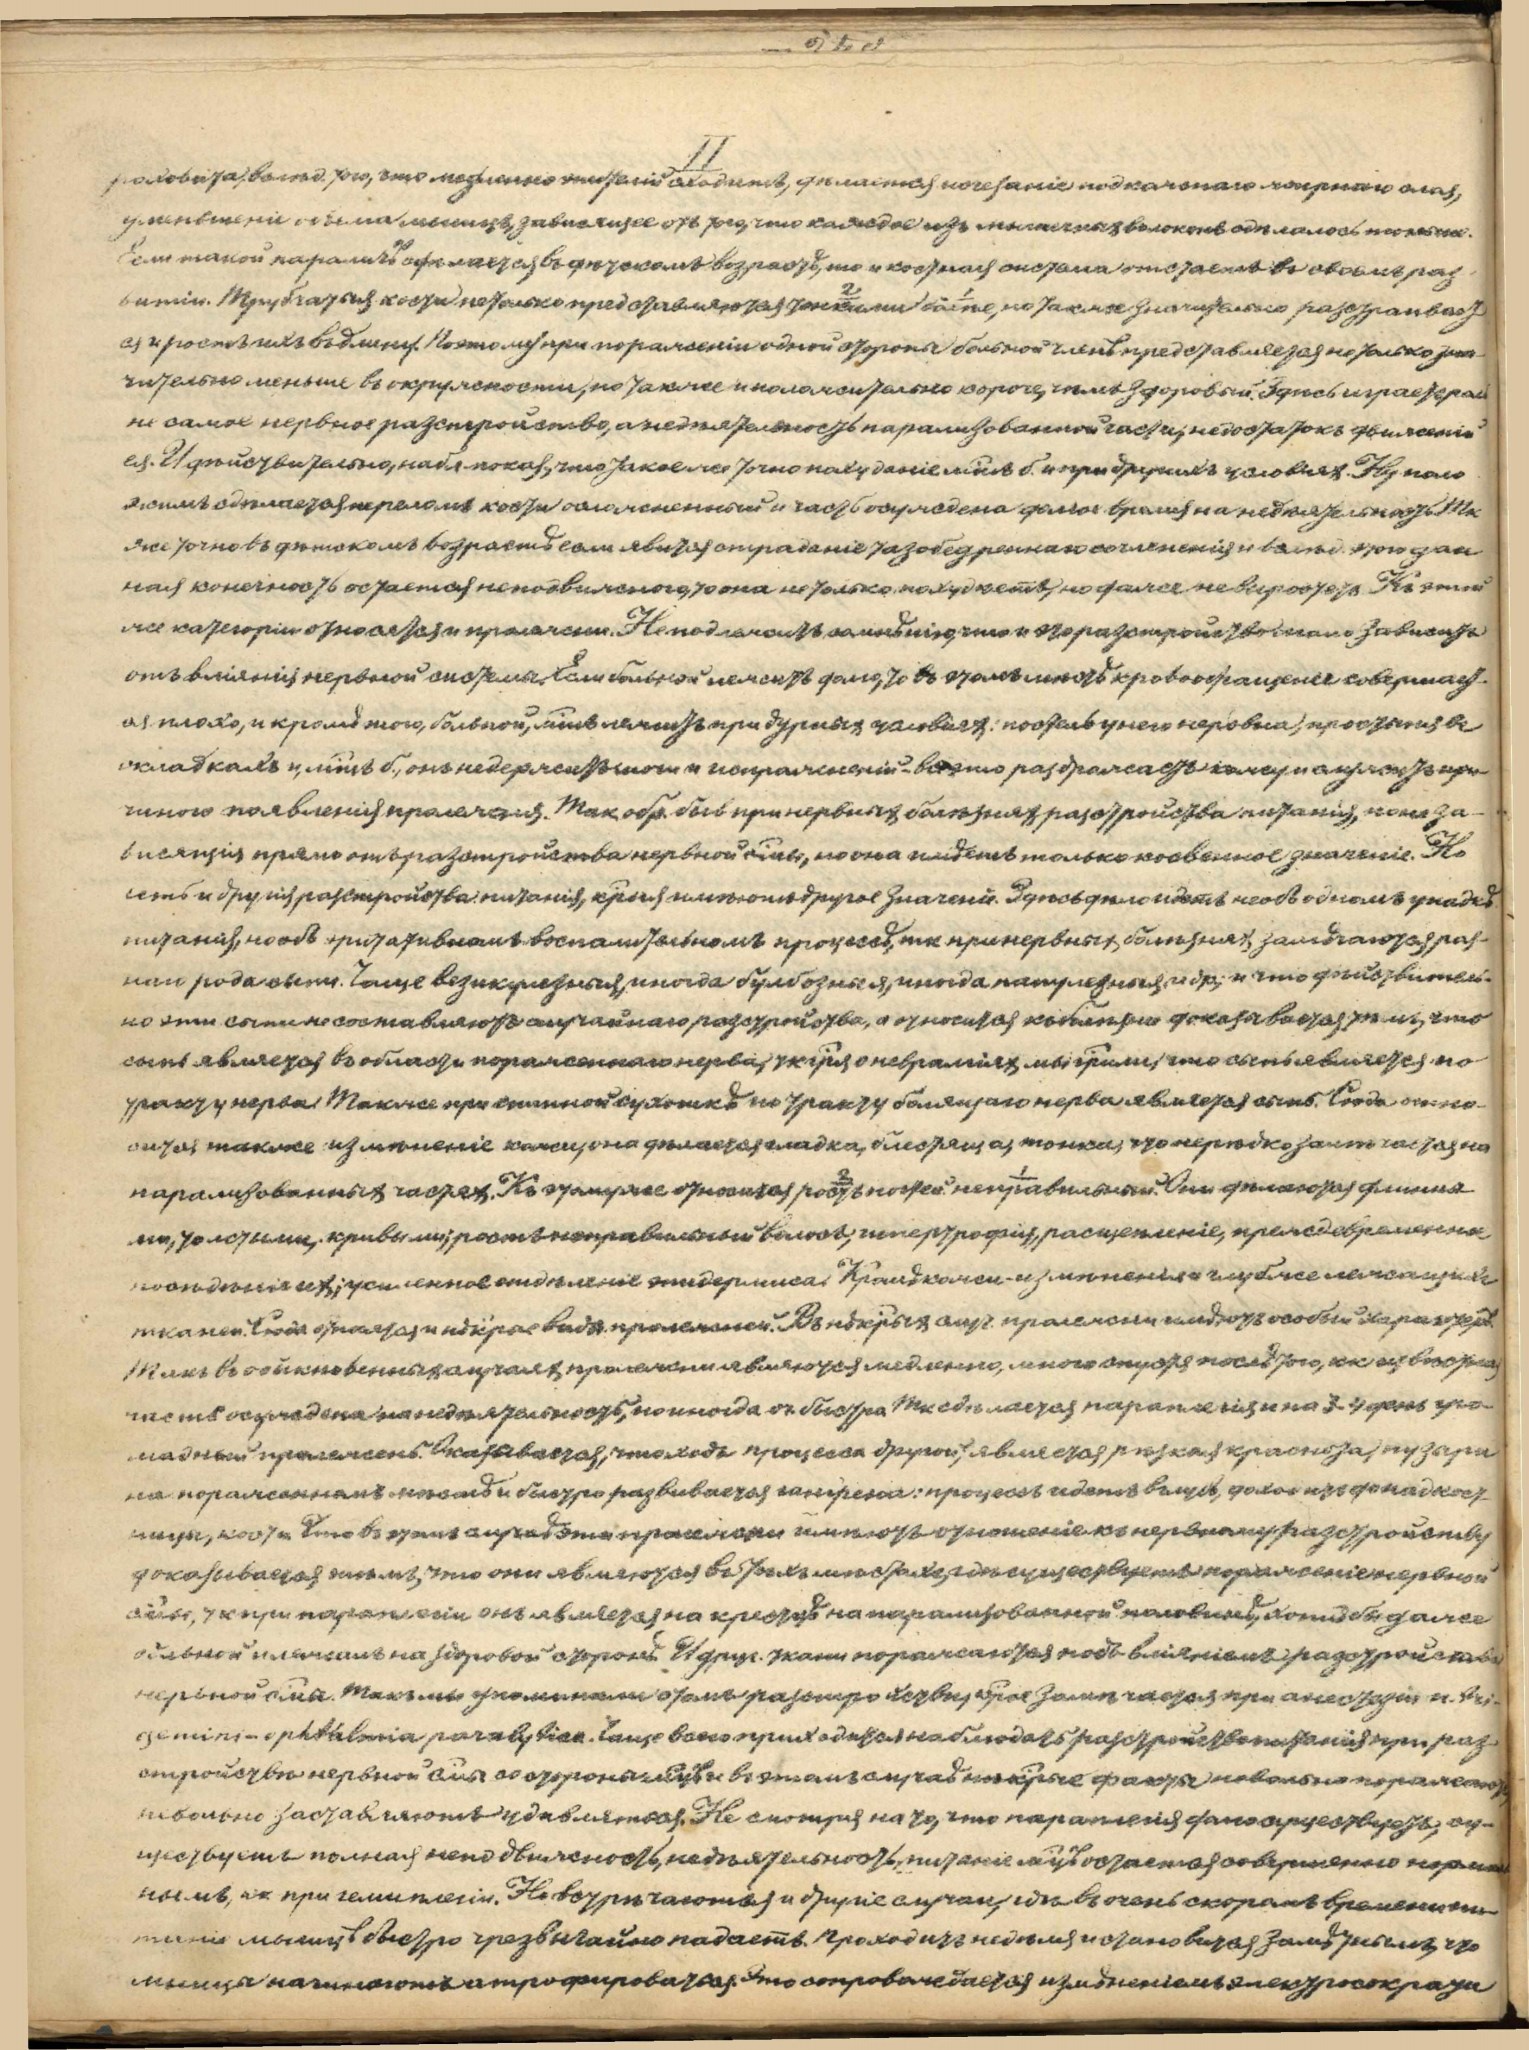 II
роховата, вслѣд. того, что медленно эпителій сходитъ, дѣлается исчезаніе подкожнаго жирнаго слоя,
уменьшеніе объема мышцъ, зависящее отъ того, что каждое изъ мышечныхъ волоконъ сдѣлалось тоньше.
Если такой параличъ сдѣлается въ дѣтскомъ возрастѣ, то и костная система отстаетъ въ своемъ раз
витіи. Трубчатыя кости не только представляются тонкими болѣе, но также значительно разстраивает
ся и ростъ ихъ въ длину. Поэтому при пораженіи одной стороны больной членъ представляется не только зна-
чительно меньше въ окружности, но также и положительно короче, чѣмъ здоровый. Здѣсь играетъ роль
не самое нервное разстройство, а недѣятельность парализованной части, недостатокъ движеній
ея. И дѣйствительно, набл. показ., что такое же точно похуданіе мышцъ б. и при другихъ условіяхъ. Ну поло
жимъ сдѣлается переломъ кости осложненный и часть осуждена долгое время на недѣятельность. Та
же точно въ дѣтскомъ возрастѣ если явится страданіе тазобедреннаго сочлененія и вслѣд. этого дан
ная конечность остается неподвижною, то она не только похудѣетъ, но даже не выростетъ. Къ этой
же категоріи относятся и пролежни. Не подлежитъ сомнѣнію, что и это разстройство мало зависитъ
отъ вліянія нервной системы. Если больной лежитъ долго, то въ этомъ мѣстѣ кровообращеніе совершает-
ся плохо, и кромѣ того, больной, мож. лежитъ при дурныхъ условіяхъ: постель у него неровна, простыня въ
складкахъ и, мож. б., онъ не держитъ мочи и испражненій - все это раздражаетъ кожу и служитъ при-
чиною появленія пролежня. Так. обр. быв. при нервныхъ болѣзняхъ разстройства питанія, но не за-
висящія прямо отъ разстройства нервной сист., но она имѣетъ только косвенное значеніе. Но
есть и другія разстройства питанія, крыя имѣютъ другое значеніе. Здѣсь дѣло идетъ не объ одномъ упадкѣ
питанія, но объ ирритативномъ воспалительномъ процессѣ, тк при нервныхъ болѣзняхъ замѣчаются раз-
наго рода сыпи. Чаще везикулезныя, иногда буллозныя, иногда папулезныя и др.; и что дѣйствитель-
но эти сыпи не составляютъ случайнаго разстройства, а относятся къ болѣзни доказывается тѣмъ, что
сыпь является въ области пораженнаго нерва, тк гря о невралгіяхъ мы грили, что сыпь является по
тракту нерва. Также при спинной сухоткѣ по тракту болящаго нерва является сыпь. Сюда отно-
сится также измѣненіе кожи, она дѣлается гладка, блестяща, тонка, что нерѣдко замѣчается на
парализованныхъ частяхъ. Къ этому же относится ростъ ногтей неправильный. Они дѣлаются длинны
ми, толстыми, кривыми; ростъ неправильный волосъ, гипертрофія, расщепленіе, преждевременное
посѣдѣніе ихъ; усиленное отдѣленіе эпидермиса. Кромѣ кожи - измѣненія и глубже лежащихъ
тканей. Сюда относятся и нѣкрые виды пролежней. Въ нѣкрыхъ случ. пролежни имѣютъ особый характеръ.
Такъ въ обыкновенныхъ случаяхъ пролежни являются медленно, много спустя послѣ того, кк извѣстная
часть осуждена на недѣятельность, но иногда оч. быстро. Тк сдѣлается параплегія и на 3-4 день гро-
мадный пролежень. Оказывается, что ходъ процесса другой, является рѣзкая краснота, пузыри
на пораженномъ мѣстѣ и быстро развивается гангрена: процессъ идетъ вглубь, доходитъ до надкост-
ницы, кости. Что въ этомъ случаѣ эти пролежни имѣютъ отношеніе къ нервному разстройству
доказывается тѣмъ, что они являются въ тѣхъ мѣстахъ, гдѣ существуетъ пораженіе нервной
сист., тк при параплегіи онъ является на крестцѣ на парализованной половинѣ, хотя бы даже
больной и лежалъ на здоровой сторонѣ. И друг. ткани поражаются подъ вліяніемъ разстройства
нервной сист. Такъ мы упоминали о томъ разстройствѣ, крое замѣчается при анестезіи n. tri-
gemini - ophthalmia paralytica. Чаще всего приходится наблюдать разстройство питанія при раз-
стройствѣ нервной сист. со стороны мышцъ и въ этомъ случаѣ нѣкрые факты невольно поражаютъ,
невольно заставляютъ удивляться. Не смотря на то, что параплегія давно существуетъ, су-
ществуетъ полная неподвижность, недѣятельность, питаніе мышцъ остается совершенно нормаль
нымъ, кк при гемиплегіи. Но встрѣчаются и другіе случаи, гдѣ въ очень скоромъ времени пи-
таніе мышцъ быстро чрезвычайно падаетъ. Проходитъ недѣля и становится замѣтнымъ, что
мышцы начинаютъ атрофироваться. Это сопровождается измѣненіемъ электросократи